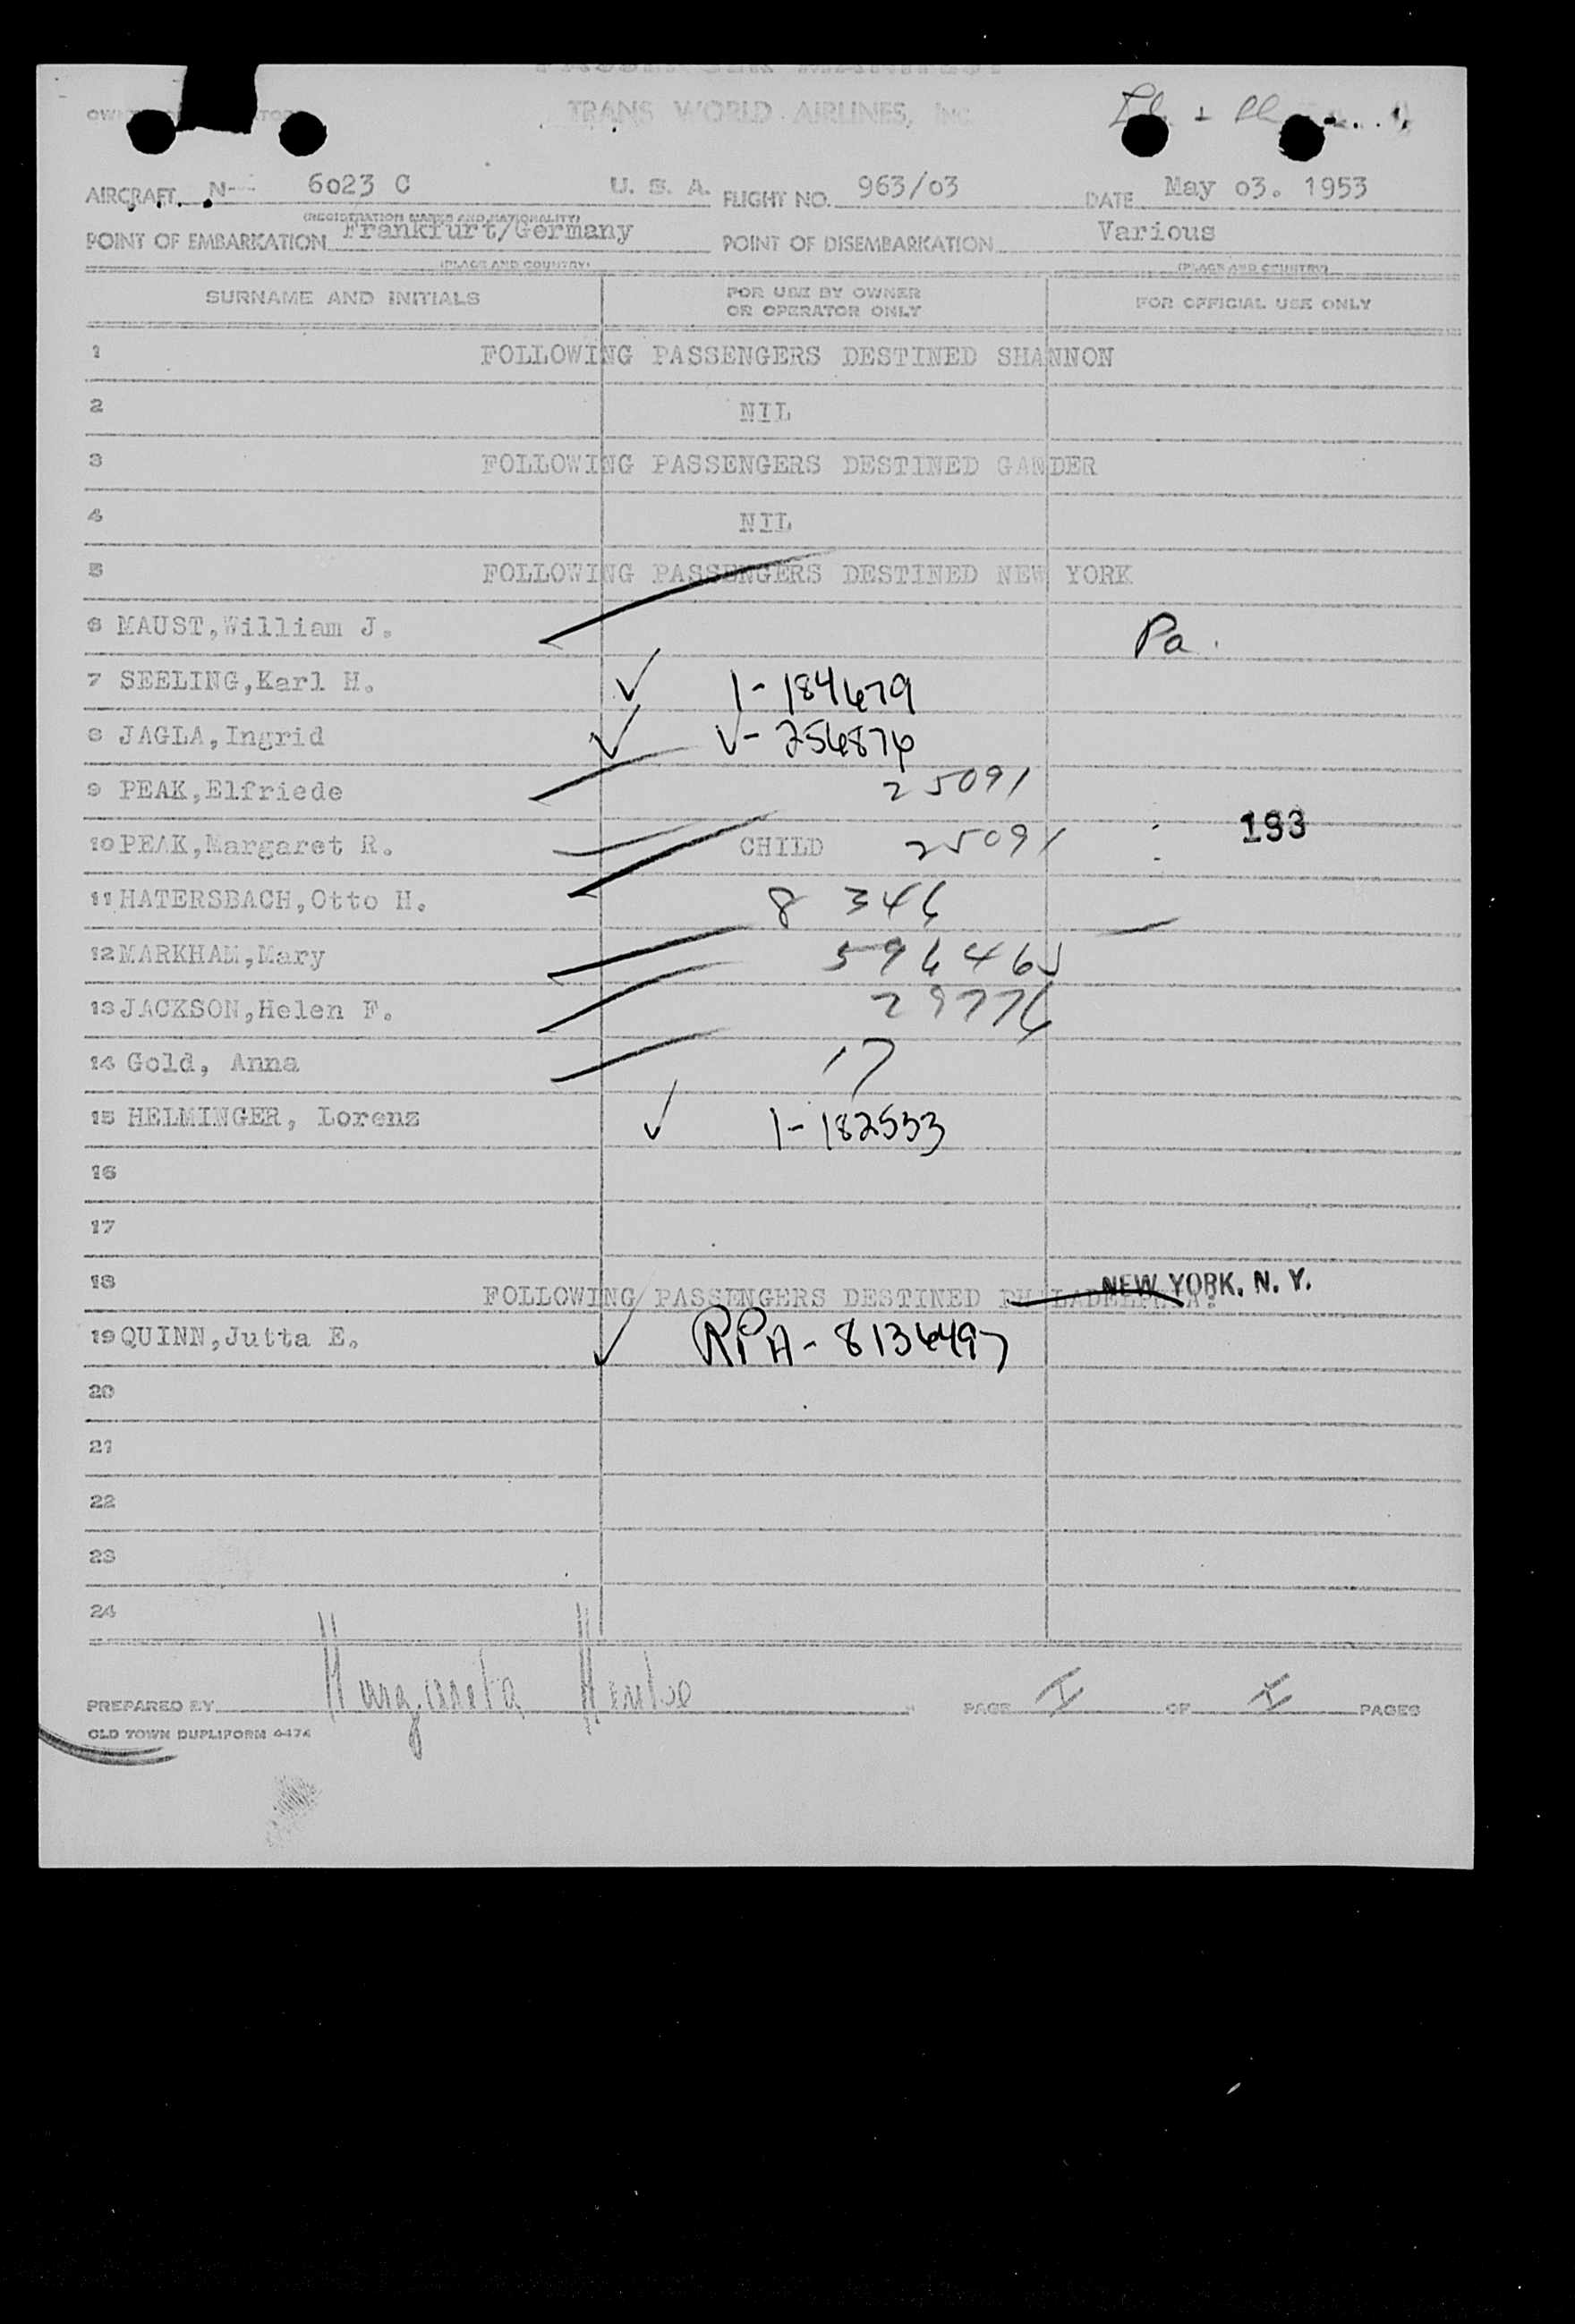 PASSENGER MANIFEST
TRANS WORLD AIRLINES, INC.
AIRCRAFT N- 6023 C U. S. A. FLIGHT NO. 963/03 DATE May 03. 1953
(REGISTRATION MARKS AND NATIONALITY)
POINT OF EMBARKATION Frankfurt/Germany POINT OF DISEMBARKATION Various
(PLACE AND COUNTRY) (PLACE AND COUNTRY)
SURNAME AND INITIALS FOR USE BY OWNER OR OPERATOR ONLY FOR OFFICIAL USE ONLY
1 FOLLOWING PASSENGERS DESTINED SHANNON
2 NIL
3 FOLLOWING PASSENGERS DESTINED GANDER
4 NIL
5 FOLLOWING PASSENGERS DESTINED NEW YORK
6 MAUST,William J. Pa.
7 SEELING,Karl H. ✓ 1-184679
8 JAGLA,Ingrid ✓ V-256876
9 PEAK,Elfriede 25091
193
10 PEAK,Margaret R. CHILD 25091
11 HATERSBACH,Otto H. 8 346
12 MARKHAM,Mary
13 JACKSON,Helen F. 29776
14 Gold, Anna 17
15 HELMINGER, Lorenz ✓ 1-182553
16
17
18 FOLLOWING PASSENGERS DESTINED PHILADELPHIA: NEW YORK, N. Y.
19 QUINN,Jutta E. ✓ RPA-8136497
20
21
22
23
24
PREPARED BY Margareta PAGE I OF I PAGES
OLD TOWN DUPLIFORM 4474